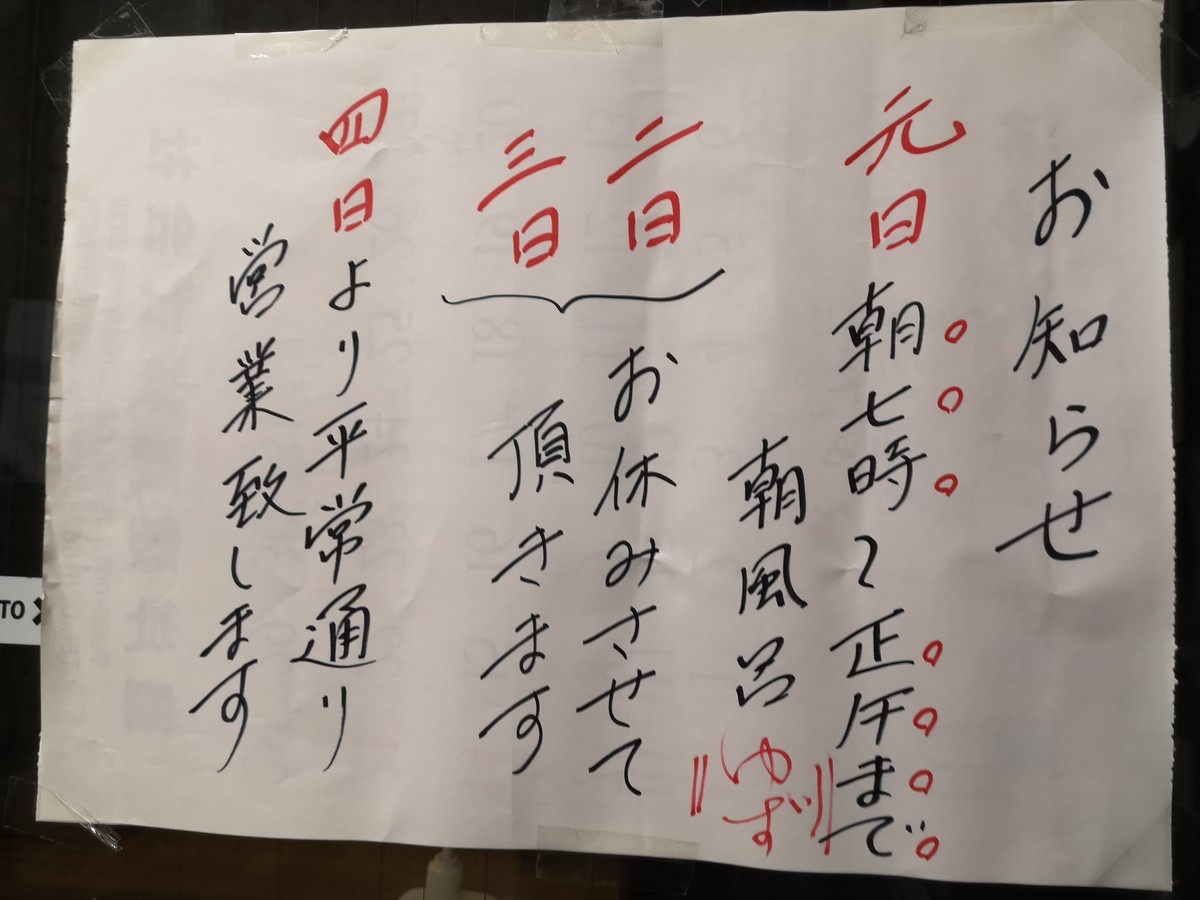 お知らせ
元日 朝七時~正午まで
朝風呂 ゆず
二日
三日
お休みさせて
頂きます
四日より平常通り
営業致します
TO